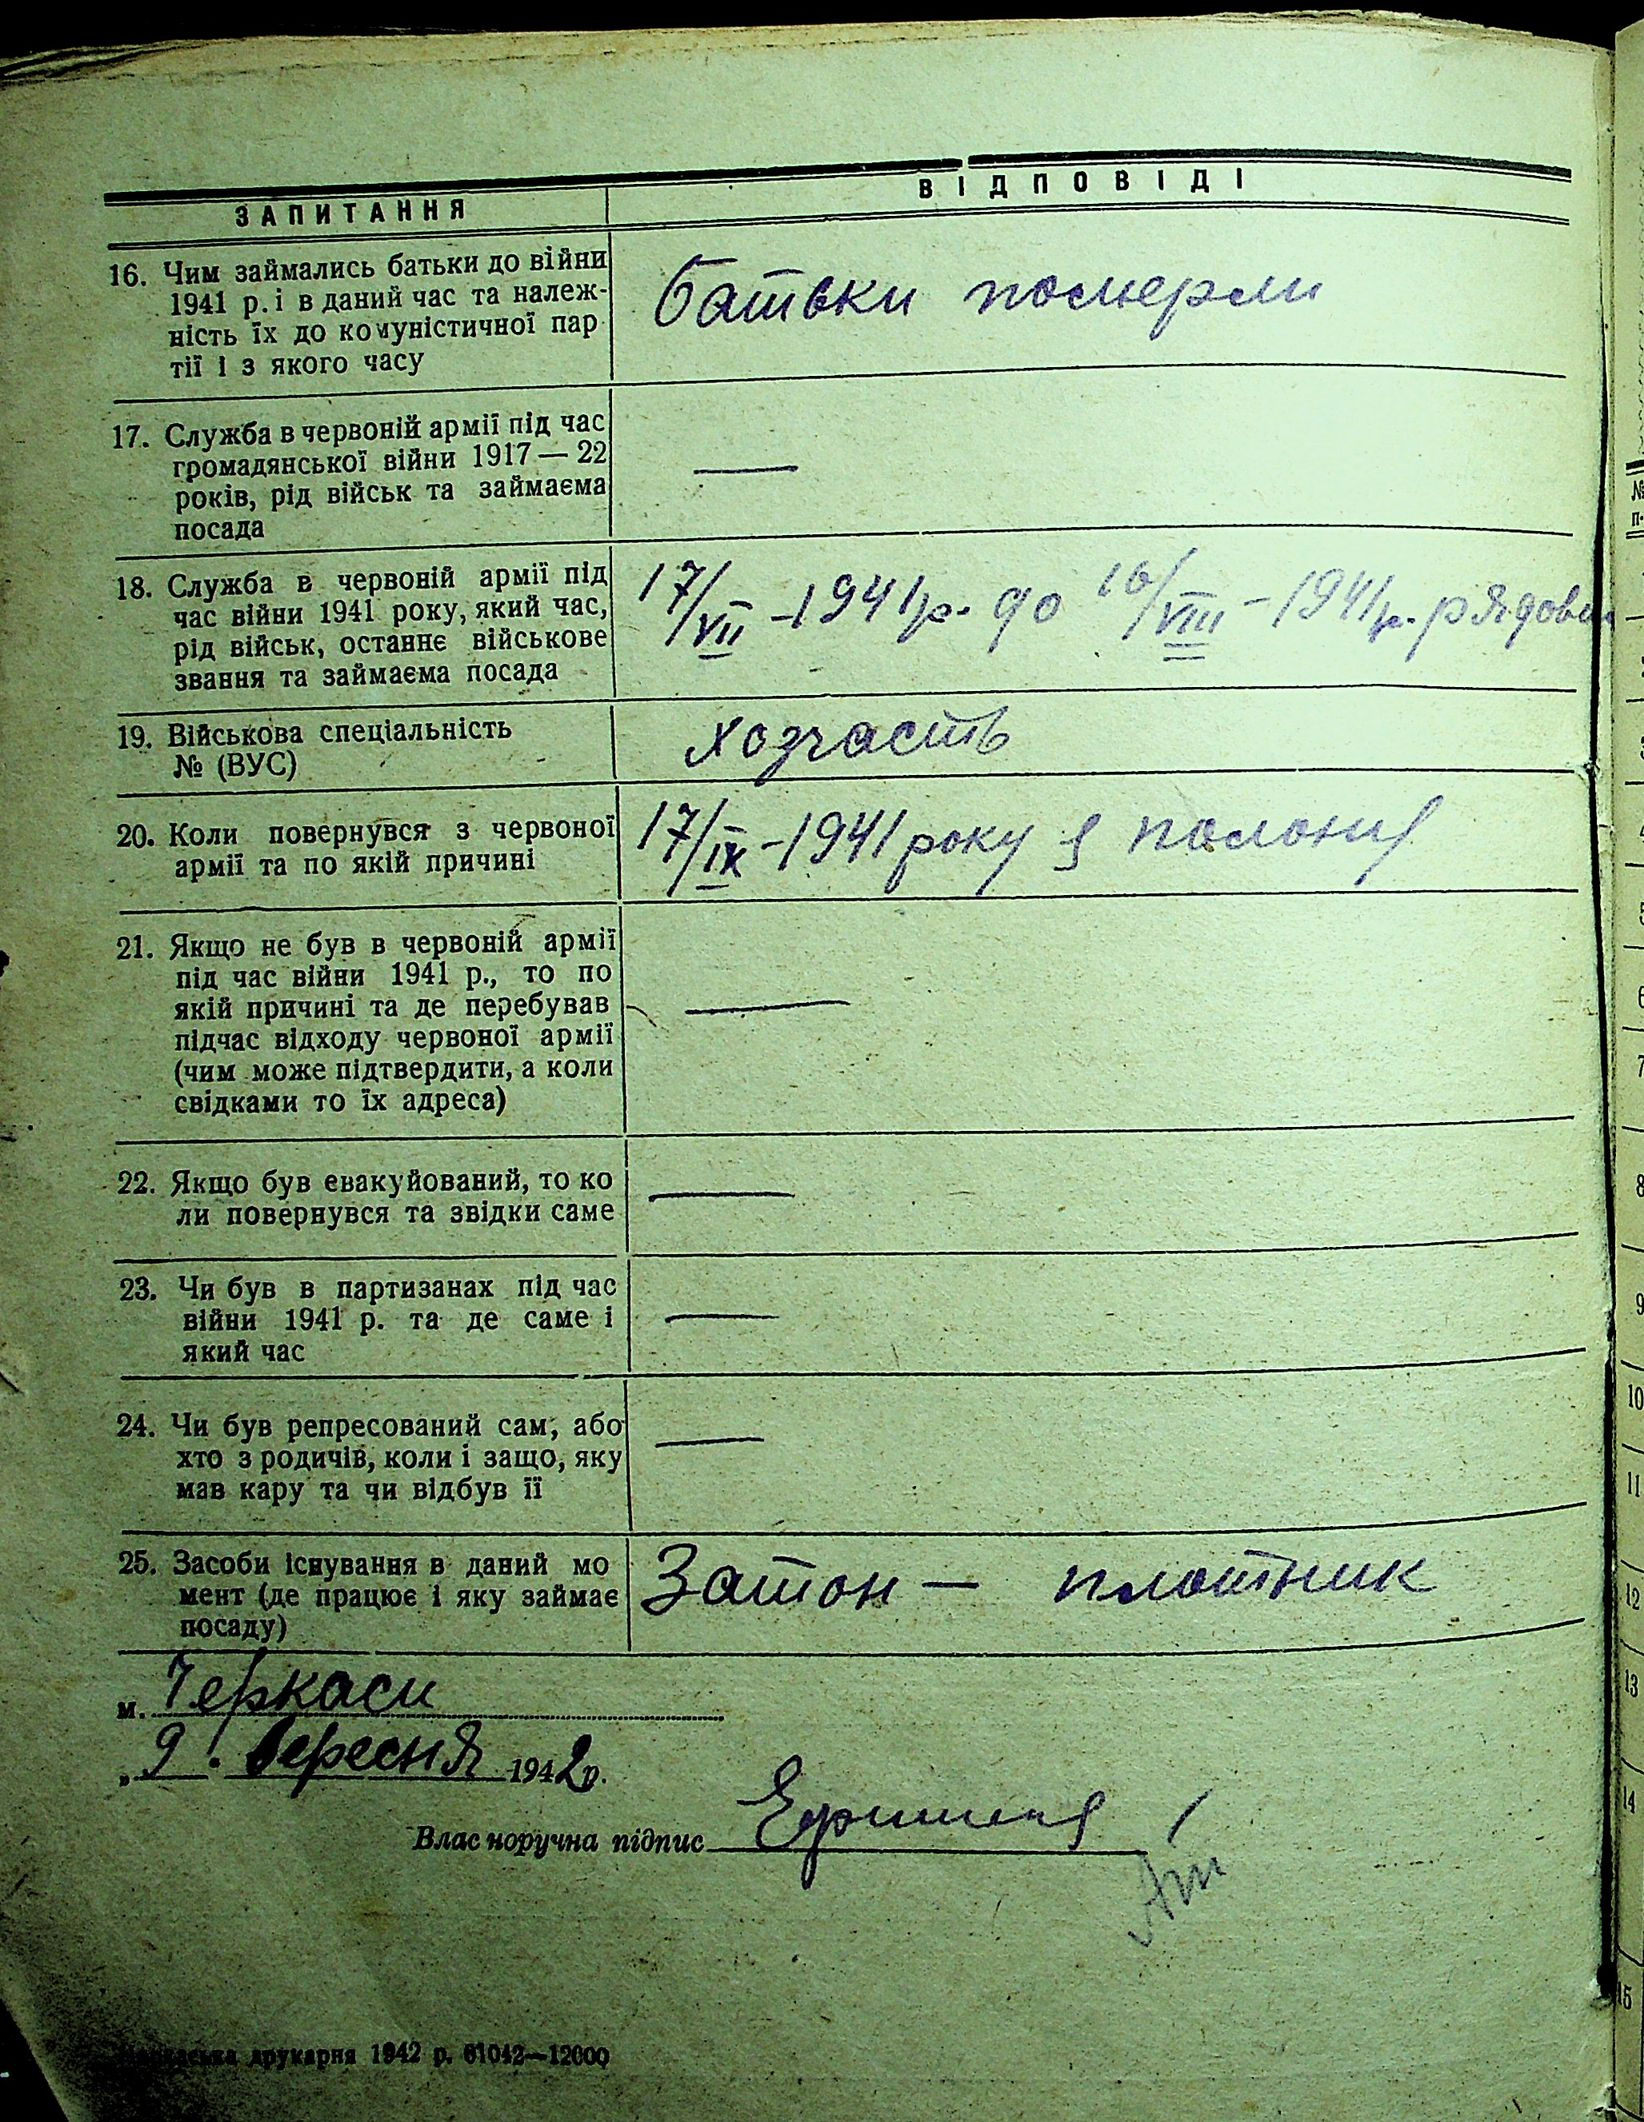 ЗАПИТАННЯ
ВІДПОВІДІ
16. Чим займались батьки до війни
1941 р. і в даний час та належ-
ність їх до комуністичної пар
тії і з якого часу
батьки померли
17. Служба в червоній армії під час
громадянської війни 1917 — 22
років, рід військ та займаєма
посада
—
18. Служба в червоній армії під
час війни 1941 року, який час,
рід військ, останнє військове
звання та займаєма посада
17/VII - 1941 р. до 16/VIII - 1941 р. рядовий
19. Військова спеціальність
№ (ВУС)
хозчасть
20. Коли повернувся з червоної
армії та по якій причині
17/IX - 1941 року з полону
21. Якщо не був в червоній армії
під час війни 1941 р., то по
якій причині та де перебував
підчас відходу червоної армії
(чим може підтвердити, а коли
свідками то їх адреса)
—
22. Якщо був евакуйований, то ко
ли повернувся та звідки саме
—
23. Чи був в партизанах під час
війни 1941 р. та де саме і
який час
—
24. Чи був репресований сам, або
хто з родичів, коли і защо, яку
мав кару та чи відбув її
—
25. Засоби існування в даний мо
мент (де працює і яку займає
посаду)
Затон — плотник
м. Черкаси
„ 9 . вересня 1942 р.
Влас норучна підпис
друкарня 1942 р. 61042—12000
№
п-
6
7
8
9
10
11
12
13
14
15